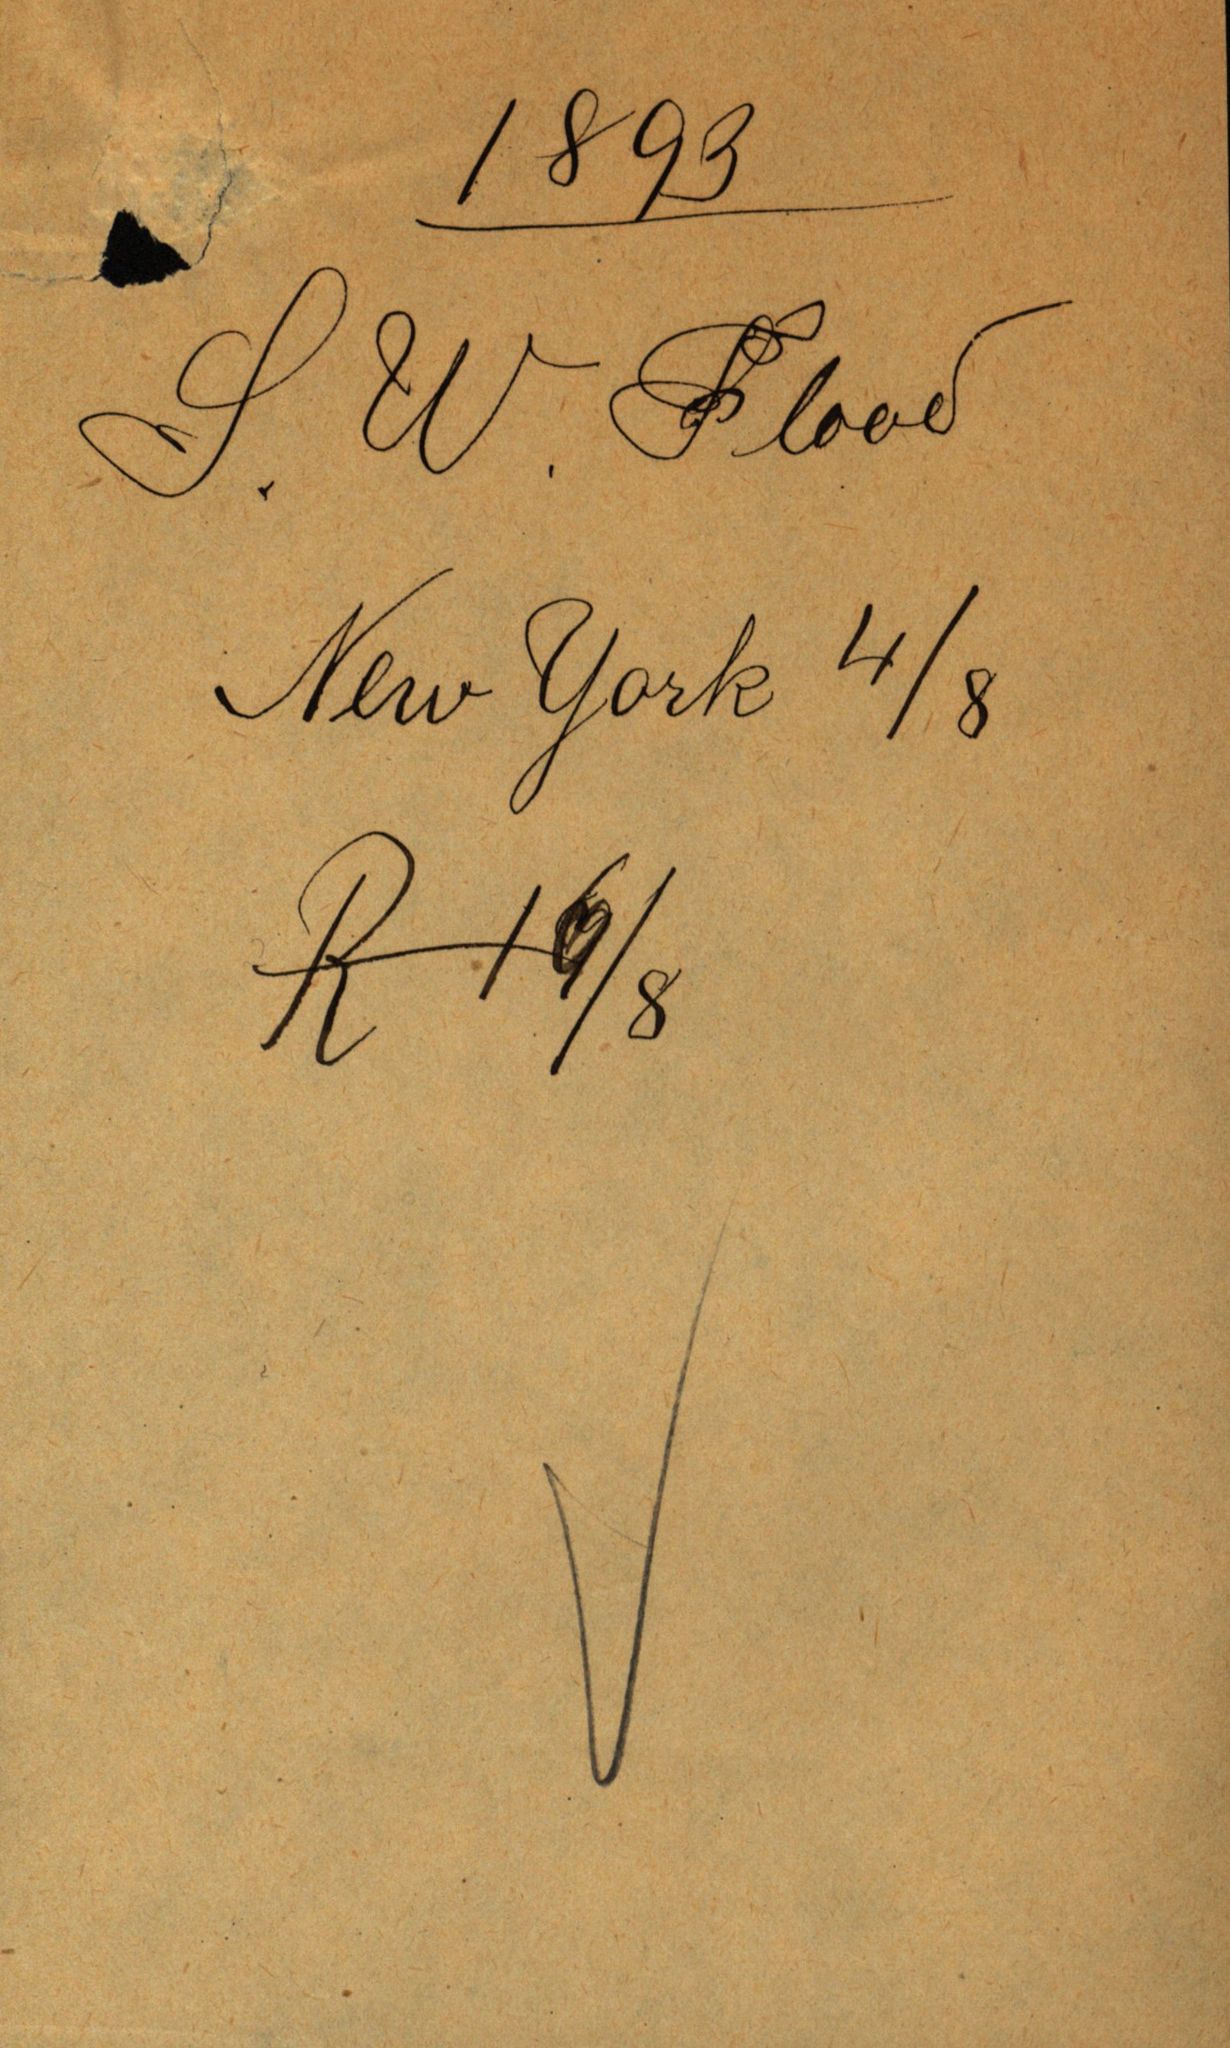 1893
S. W. Flood
New York 4/8
R 16/8